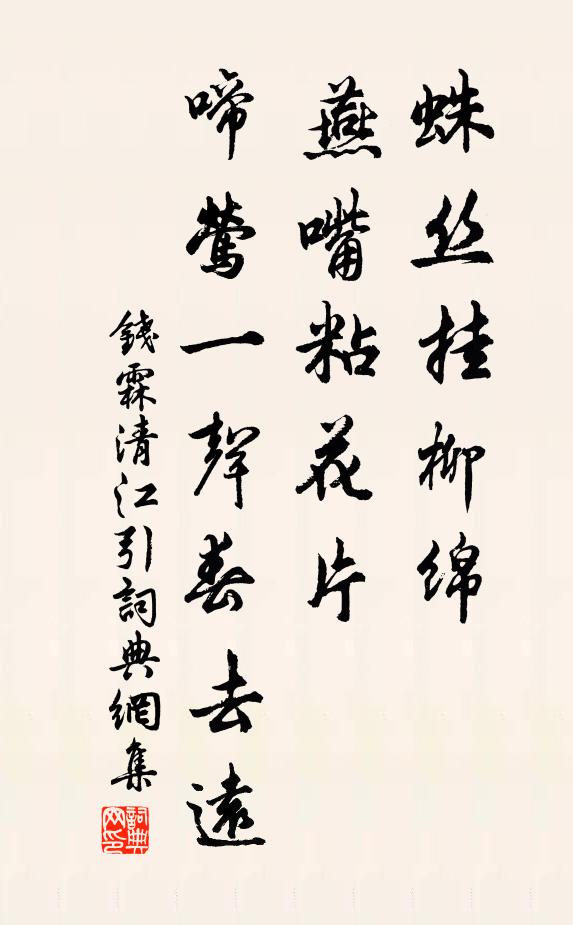 蛛丝挂柳绵
燕嘴粘花片
啼莺一聲春去遠
錢霖清江引詞典網集
詞典網印